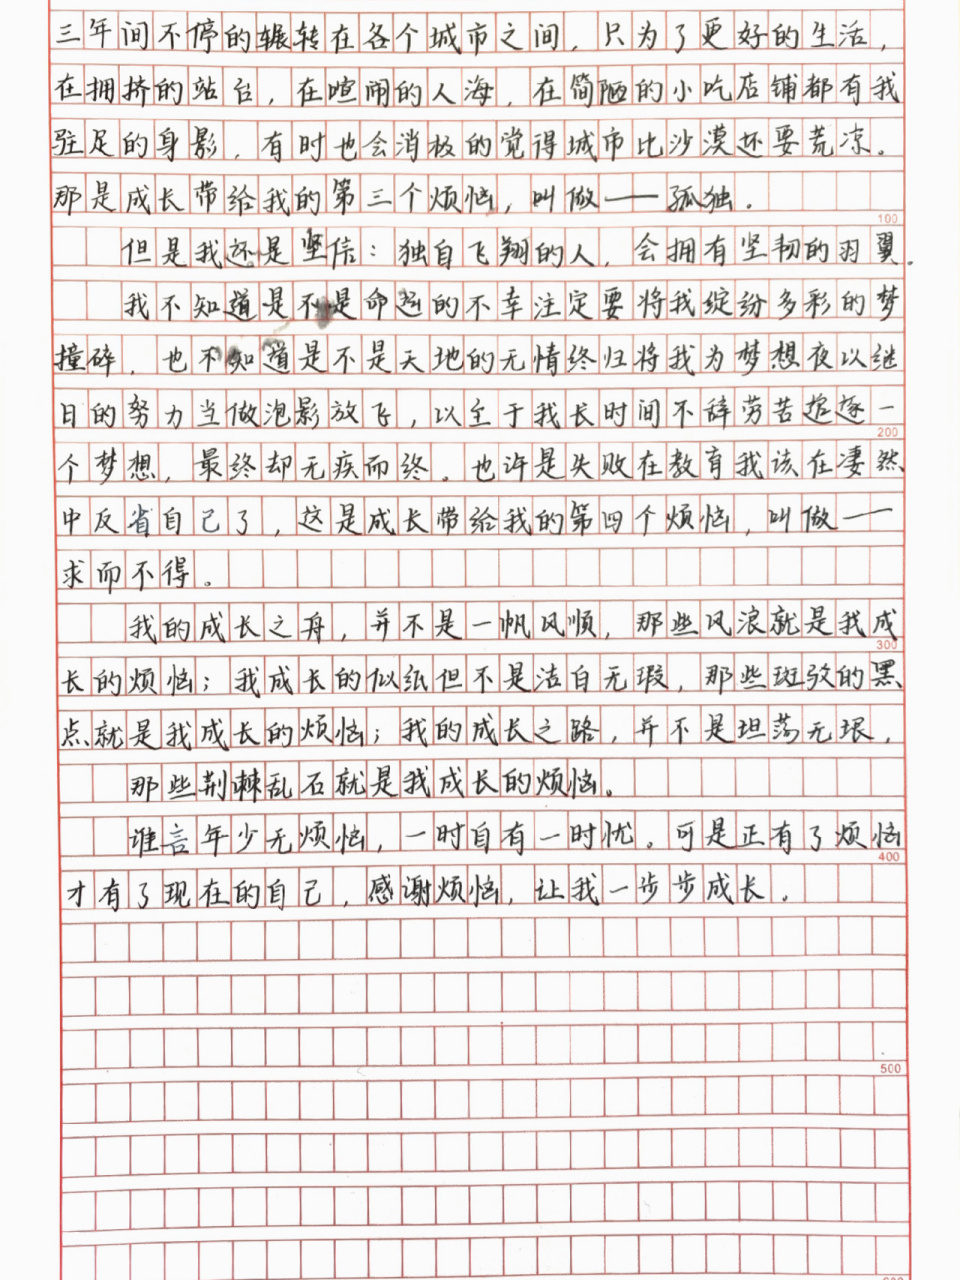 三年间不停的辗转在各个城市之间，只为了更好的生活，
在拥挤的站台，在喧闹的人海，在简陋的小吃店铺都有我
驻足的身影，有时也会消极的觉得城市比沙漠还要荒凉。
那是成长带给我的第三个烦恼，叫做——孤独。
100
但是我还是坚信：独自飞翔的人，会拥有坚韧的羽翼。
我不知道是不是命运的不幸注定要将我缤纷多彩的梦
撞碎，也不知道是不是天地的无情终归将我为梦想夜以继
日的努力当做泡影放飞，以至于我长时间不辞劳苦追逐一
200
个梦想，最终却无疾而终。也许是失败在教育我该在凄然
中反省自己了，这是成长带给我的第四个烦恼，叫做——
求而不得。
我的成长之舟，并不是一帆风顺，那些风浪就是我成
300
长的烦恼；我成长的似纸但不是洁白无瑕，那些斑驳的黑
点就是我成长的烦恼；我的成长之路，并不是坦荡无垠，
那些荆棘乱石就是我成长的烦恼。
谁言年少无烦恼，一时自有一时忧。可是正有了烦恼
400
才有了现在的自己，感谢烦恼，让我一步步成长。
500